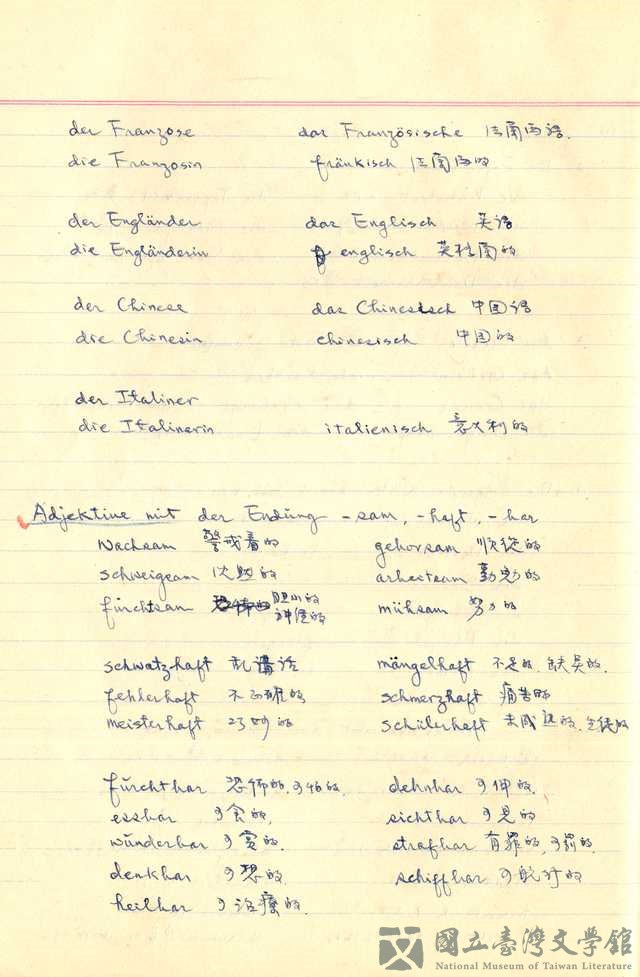 der Franzose das Französische 法蘭西語.
die Französin fränkisch 法蘭西的
der Engländer das Englisch 英語
die Engländerin englisch 英格蘭的
der Chinese das Chinesisch 中国語
die Chinesin chinesisch 中国的
der Italiner
die Italinerin italienisch 意大利的
Adjektive mit der Endung -sam, -haft, -bar
wachsam 警戒着的 gehorsam 順從的
schweigsam 沈默的 arbeitsam 勤勉的
fürchtsam 胆小的 mühsam 努力的
神經的
schwatzhaft 乱講話 mängelhaft 不足的. 缺異的.
fehlerhaft 不正確的 schmerzhaft 痛苦的
meisterhaft 巧妙的 schülerhaft 未成熟的.
fürchtbar 恐怖的.可怕的. dehnbar 可伸的.
essbar 可食的. sichtbar 可見的
wünderbar 可驚的. strafbar 有罪的.可罰的.
denkbar 可想的. schiffbar 可航行的
heilbar 可治療的.
國立臺灣文學館
National Museum of Taiwan Literature